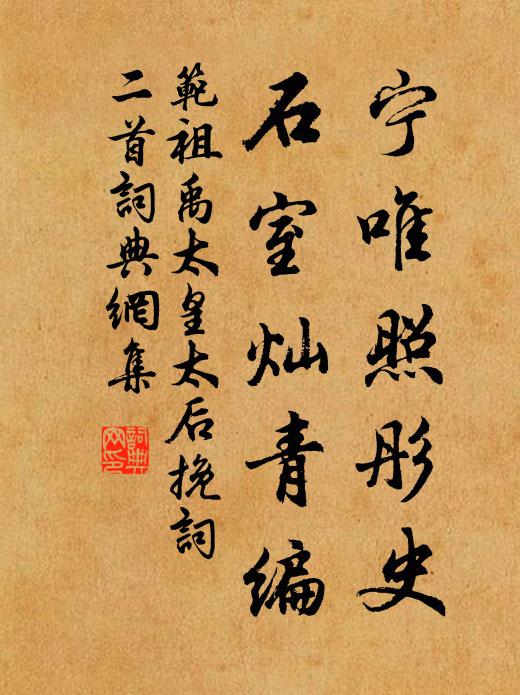 宁唯照彤史
石室灿青编
範祖禹太皇太后挽詞
二首詞典網集
詞典
网印